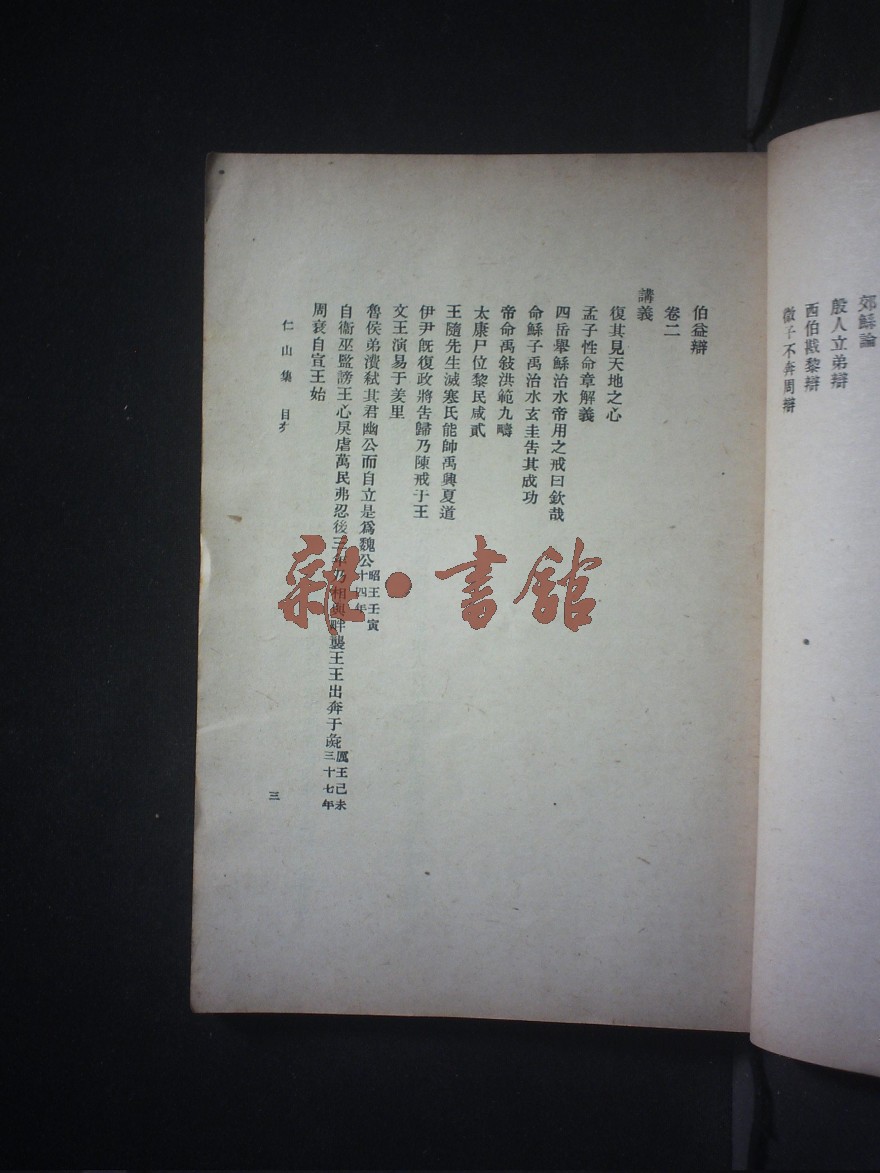 郊鯀論
殷人立弟辯
西伯戡黎辯
微子不奔周辯
伯益辯
卷二
講義
復其見天地之心
孟子性命章解義
四岳舉鯀治水帝用之戒曰欽哉
命鯀子禹治水玄圭告其成功
帝命禹敍洪範九疇
太康尸位黎民咸貳
王隨先生滅寒氏能帥禹興夏道
伊尹旣復政將告歸乃陳戒于王
文王演易于羑里
魯侯弟㵒弑其君幽公而自立是爲魏公昭王壬寅十四年
自衞巫監謗王心戾虐萬民弗忍後三年乃相與畔襲王王出奔于彘厲王己未三十七年
周衰自宣王始
仁山集 目次
三
雜·書館